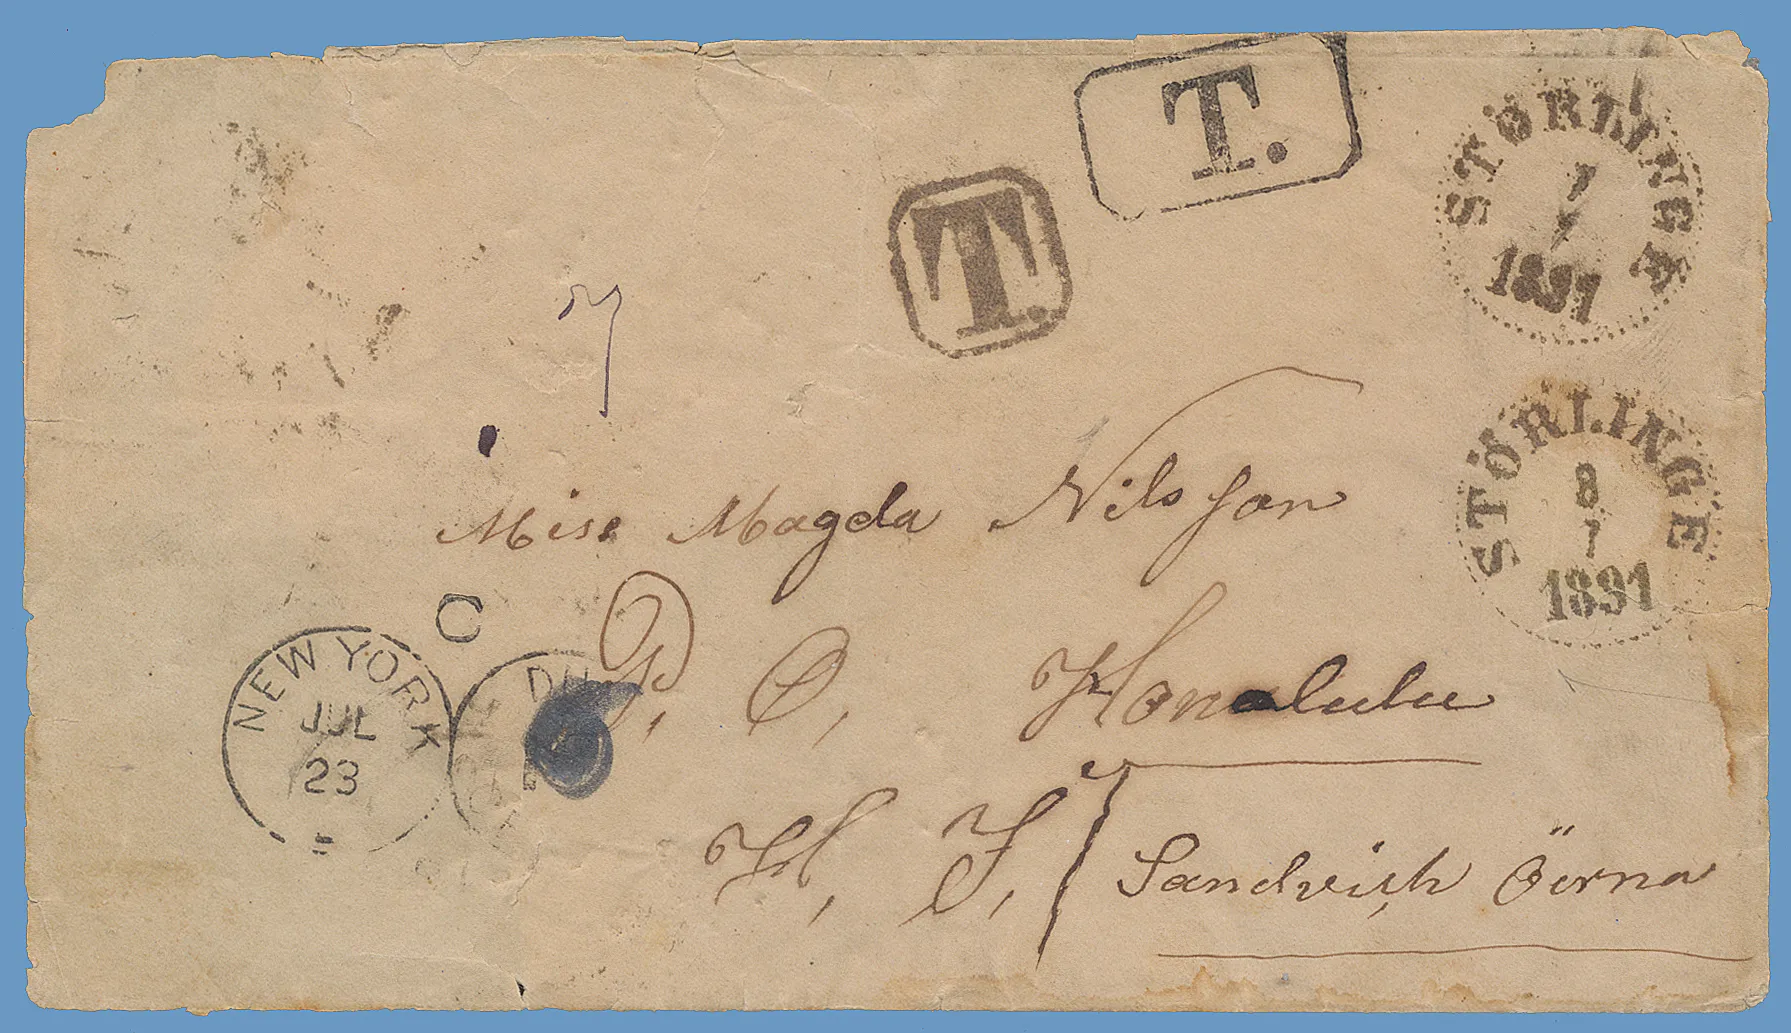 T.
T.
STÖRLINGE
7
7
1891
STÖRLINGE
8
7
1891
7
Miss Magda Nilsson
P. O. Honolulu
H. I. Sandvich Öerna
C
NEW YORK
JUL
23
DU